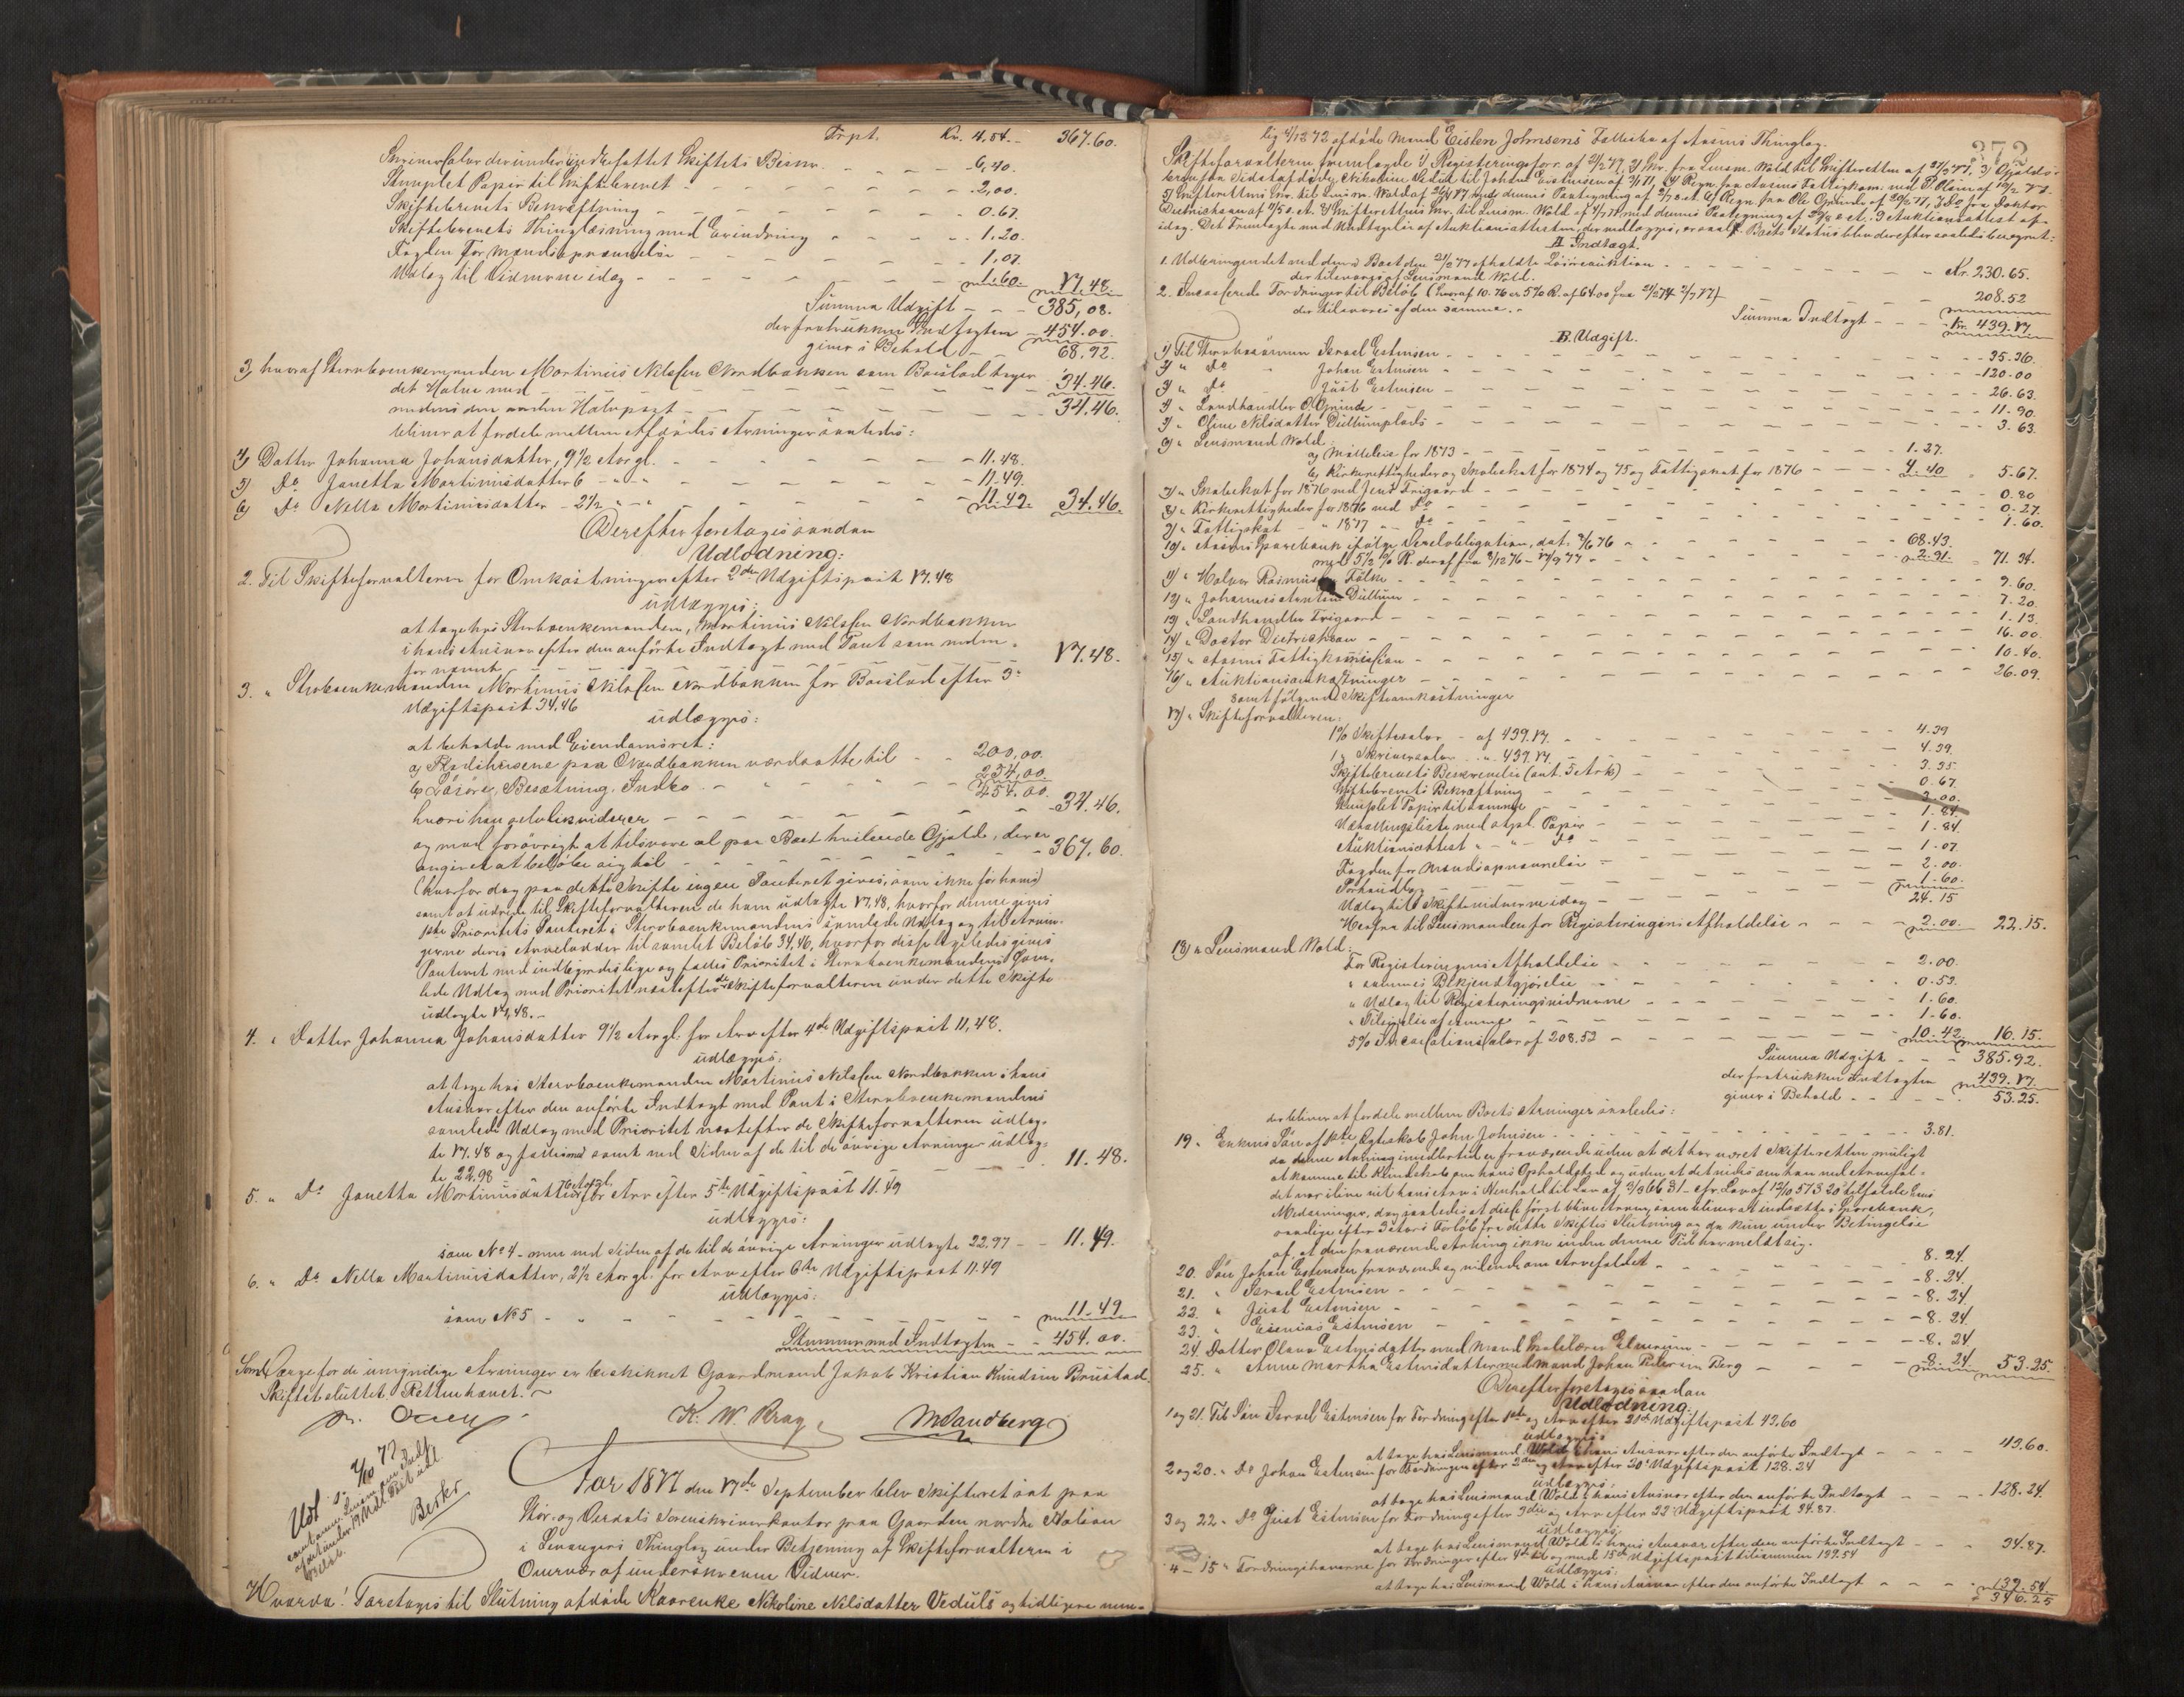 Trpt. Kr. 4,54.- 367.60.
Skriversalær derunder indbefattet Skiftets Beskr. - - - - 6,40.
Stemplet Papir til Skiftebrevet - - - - 2,00.
Skiftebrevets Bekræftning - - - - 0.67.
Skiftebrevets Thinglæsning med Erindring - - - - 1.20.
Fogden for Mændsopnævnelse - - - - 1,07.
Udlæg til Vidnerne idag - - - - 1.60. 17.48.
Summa Udgift - - - 385,08.
der fratrukken Indtægten - 454.00.
giver i Behold - - 68.92.
3) hvoraf Sterboenkemanden Mortinus Nilssen Nordbakken som Boeslod tager
det Halve med - - - - 34.46.
medens den anden Halvpart - - - - 34.46.
bliver at fordele mellem Afdødes Arvinger saaledes:
4) Datter Johanna Johansdatter, 9 1/2 Aar gl. - - - - 11.48.
5) Do Janetta Mortinusdatter 6 - " - " - - - - 11.49.
6) Do Nella Mortinusdatter - 2 1/2 " - " - - - - 11.49. 34.46.
Derefter foretages saadan
Udlodning:
2. Til Skifteforvalteren for Omkostninger efter 2den Udgiftspost 17.48
udlægges:
at tage hos Sterboenkemanden, Mortinus Nilssen Nordbakken
i hans Ansvar efter den anførte Indtægt med Pant som neden-
for nævnt - - - - 17.48.
3. " Sterboenkemanden Mortinus Nilssen Nordbakken for Boeslod efter 3de
Udgiftspost 34.46
udlægges:
at beholde med Eiendomsret:
a) Pladshusene paa Nordbakken værdsatte til - - 200,00.
b) Løsøre, Besætning, Indbo - - - - 254,00.
454.00.
hvori han selv likviderer - - - - 34.46.
og mod forøvrigt at tilsvare al paa Boet hvilende Gjæld, der er
angivet at beløbe sig til - - - - 367.60.
(hvorfor dog paa dette Skifte ingen Panteret gives,
samt at udrede til Skifteforvalteren de ham udlagte 17,48, hvorfor denne gives
1ste Prioritets Panteret i Sterboenkemandens samlede Udlæg og til Arvin-
gerne deres Arvelodder til samlet Beløb 34,46, hvorfor disse ligeledes gives
Panteret med indbyrdes lige og fælles Prioritet i Sterboenkemandens sam-
lede Udlæg med Prioritet næstefter de Skifteforvalteren under dette Skifte
udlagte 17,48.-
4. " Datter Johanna Johansdatter 9 1/2 Aar gl. for Arv efter 4de Udgiftspost 11,48.
udlægges:
at tage hos Sterboenkemanden Mortinus Nilssen Nordbakken i hans
Ansvar efter den anførte Indtægt med Pant i Sterboenkemandens
samlede Udlæg med Prioritet næstefter de Skifteforvalteren udlag-
te 17.48 og samt ved Siden af de til de øvrige Arvinger udlag-
te 22.98 - - - - 11.48.
5. " Do Janetta Mortinusdatter 6 Aar gl. for Arv efter 5te Udgiftspost 11.49
udlægges:
som No 4 - men ved Siden af de til de øvrige Arvinger udlagte 22.97 - - 11.49.
6. " Do Nella Mortinusdatter, 2 1/2 Aar gl. for Arv efter 6te Udgiftspost 11.49
udlægges:
som No 5 - - - - 11.49
Stemmer med Indtægten - - 454.00.
Som Værge for de umyndige Arvinger er beskikket Gaardmand Jakob Kristian Knudsen Brustad.
Skiftet sluttet. Retten hævet.
K. W. Krag M Sandberg
Aar 1877 den 17de September blev Skifteret sat paa
Stør- og Værdals Sorenskriverkontor paa Gaarden nordre
i Levangers Thinglag under Betjening af Skifteforvalteren i
Overvær af underskrevne Vidner.
Hvorda! Foretoges til Slutning afdøde Kaarenke Nikoline Nilsdatter Veduls og tidligere nem-
372
lig 4/12 72 afdøde Mand Eisten Johnsens Fællesbo af Aasens Thinglag.
Skifteforvalteren fremlagde 1) Registreringsforr. af 21/2 77, 2) Skr. fra Lensm. Wold til Skifteretten af 27/2 77, 3) Gjælds-
5) Skifterettens Skr. til Lensm. Wold af 26/4 77 med dennes Paategning af
idag. Det Fremlagte med Undtagelse af Auktionsattesten, der vedlægges, Boets Status blev derefter saaledes beregnet:
A. Indtægt.
1. Udbringendet ved den i Boet den 21/3 77 afholdte Løsøreauktion - - - - Kr. 230.65.
der tilsvares af Lensmand Wold.
2. Incasserede Fordringer til Beløb (hvoraf 10.76 er 5% R. af 64.00 fra - - 208.52
der tilsvares af den samme. -
Summa Indtægt - - - Kr. 439.17
B. Udgift.
1) Til Sterbosønnen Israel Estensen - - - - 35.36.
2) " Do " Johan Estensen - - - - 120.00
3) " Do " Just Estensen - - - - 26.63.
4) " Landhandler O. Gjeinde - - - - 11.90.
5) " Oline Nilsdatter Dullumplads - - - - 3.63.
6) " Lensmand Wold:
a) for 1873 - - - - 1.27.
b) Kirkerettigheder og Skoleskat for 1874 og 75 og Fattigskat for 1876 - - 4.40 5.67.
7) " Skoleskat for 1876 ved Jens Frigaard - - - - 0.80
8) " Kirkerettigheder for 1876 ved Do - - - - 0.27.
9) " Fattigskat - " 1877 - - Do - - - - 1.60.
10) " Aasens Sparebank ifølge Vexelobligation, dat. 3/6 76 - - 68.43.
med 5 1/2 % R. deraf fra 3/12 76 - 17/9 77 - - 2.91. 71.34.
11) " Halvor Rasmus Falke - - - - 9.60.
12) " Johannes Dullum - - - - 7.20.
13) " Landhandler Frigaard - - - - 1.13.
14) " Doctor Dietrichson - - - - 16.00.
15) " Aasens Fattigkomission - - - - 10.40.
16) " Auktionsomkostninger - - - - 26.09.
samt følgende Skifteomkostninger
17) " Skifteforvalteren:
1% Skiftesalær - af 439.17. - - - - 4.39
1% Skriversalær - " 439.17. - - - - 4.39.
Skiftebrevets Beskrivelse (ant. 5 Ark) - - - - 3.35.
Skiftebrevets Bekræftning - - - - 0.67.
Stemplet Papir til samme - - - - 2.00.
Udtællingsliste med stpl. Papir - - - - 1.84.
Auktionsattest " - " - Do - - - - 1.84.
Fogden for Mændsopnævnelse - - - - 1.07
Forhandling - - - - 2.00.
Udlæg til Skiftevidnerne idag - - - - 1.60.
24.15
Herfra til Lensmanden for Registreringens Afholdelse - - - - 2.00. 22.15.
18) " Lensmand Wold:
For Registreringens Afholdelse - - - - 2.00.
" sammes Bekjendtgjørelse - - - - 0.53.
" Udlæg til Registreringsvidnerne - - - - 1.60.
" Tilsigelse af samme - - - - 1.60.
5% Incassationssalær af 208.52 - - - - 10.42. 16.15.
Summa Udgift - - - 385.92.
der fratrukken Indtægten 439.17.
giver i Behold - - - 53.25.
der bliver at fordele mellem Boets Arvinger saaledes:
19. Enkens Søn af 1ste Ægteskab John Johnsen - - - - 3.81.
da denne Arving imidlertid er fraværende uden at det har været Skifteretten muligt
at komme til Kundskab om hans Opholdssted og uden at det vides om han ved Arvefal-
det var ilive vil hans Arv i Henhold til Lov af
Medarvinger, dog saaledes at disse først blive Arven, som bliver at indsætte i Sparebank,
raadige efter 3 Aars Forløb fra dette Skiftes Slutning og da kun under Betingelse
af, at den fraværende Arving ikke inden denne Tid har meldt sig.
20. Søn Johan Estensen fraværende og uvidende om Arvefaldet - - - - 8.24.
21. " Israel Estensen - - - - 8.24.
22. " Just Estensen - - - - 8.24.
23. " Esenias Estensen - - - - 8.24.
24. Datter Olava Estensdatter med Mand - - - - 8.24
25. " Anne Martha Estensdatter med Mand Johan Berg - - - - 8.24. 53.25.
Derefter foretages saadan
Udlodning:
1 og 21. Til Søn Israel Estensen for Fordring efter 1ste og Arv efter 21de Udgiftspost 43.60
udlægges
at tage hos Lensmand Wold i hans Ansvar efter den anførte Indtægt - - - - 43.60.
2 og 20. " Do Johan Estensen for Fordringen efter 2den og Arv efter 20de Udgiftspost 128.24
udlægges:
at tage hos Lensmand Wold i hans Ansvar efter den anførte Indtægt - - - - 128.24.
3 og 22. " Do Just Estensen for Fordring efter 3die og Arv efter 22de Udgiftspost 34.87.
udlægges:
at tage hos Lensmand Wold i hans Ansvar efter den anførte Indtægt - - - - 34.87.
4 - 15 " Fordringshaverne for Fordringer efter 4de til og med 15de Udgiftspost tilsammen 139.54
udlægges:
at tage hos Lensmand Wold i hans Ansvar efter den anførte Indtægt - - - - 139.54.
346.25